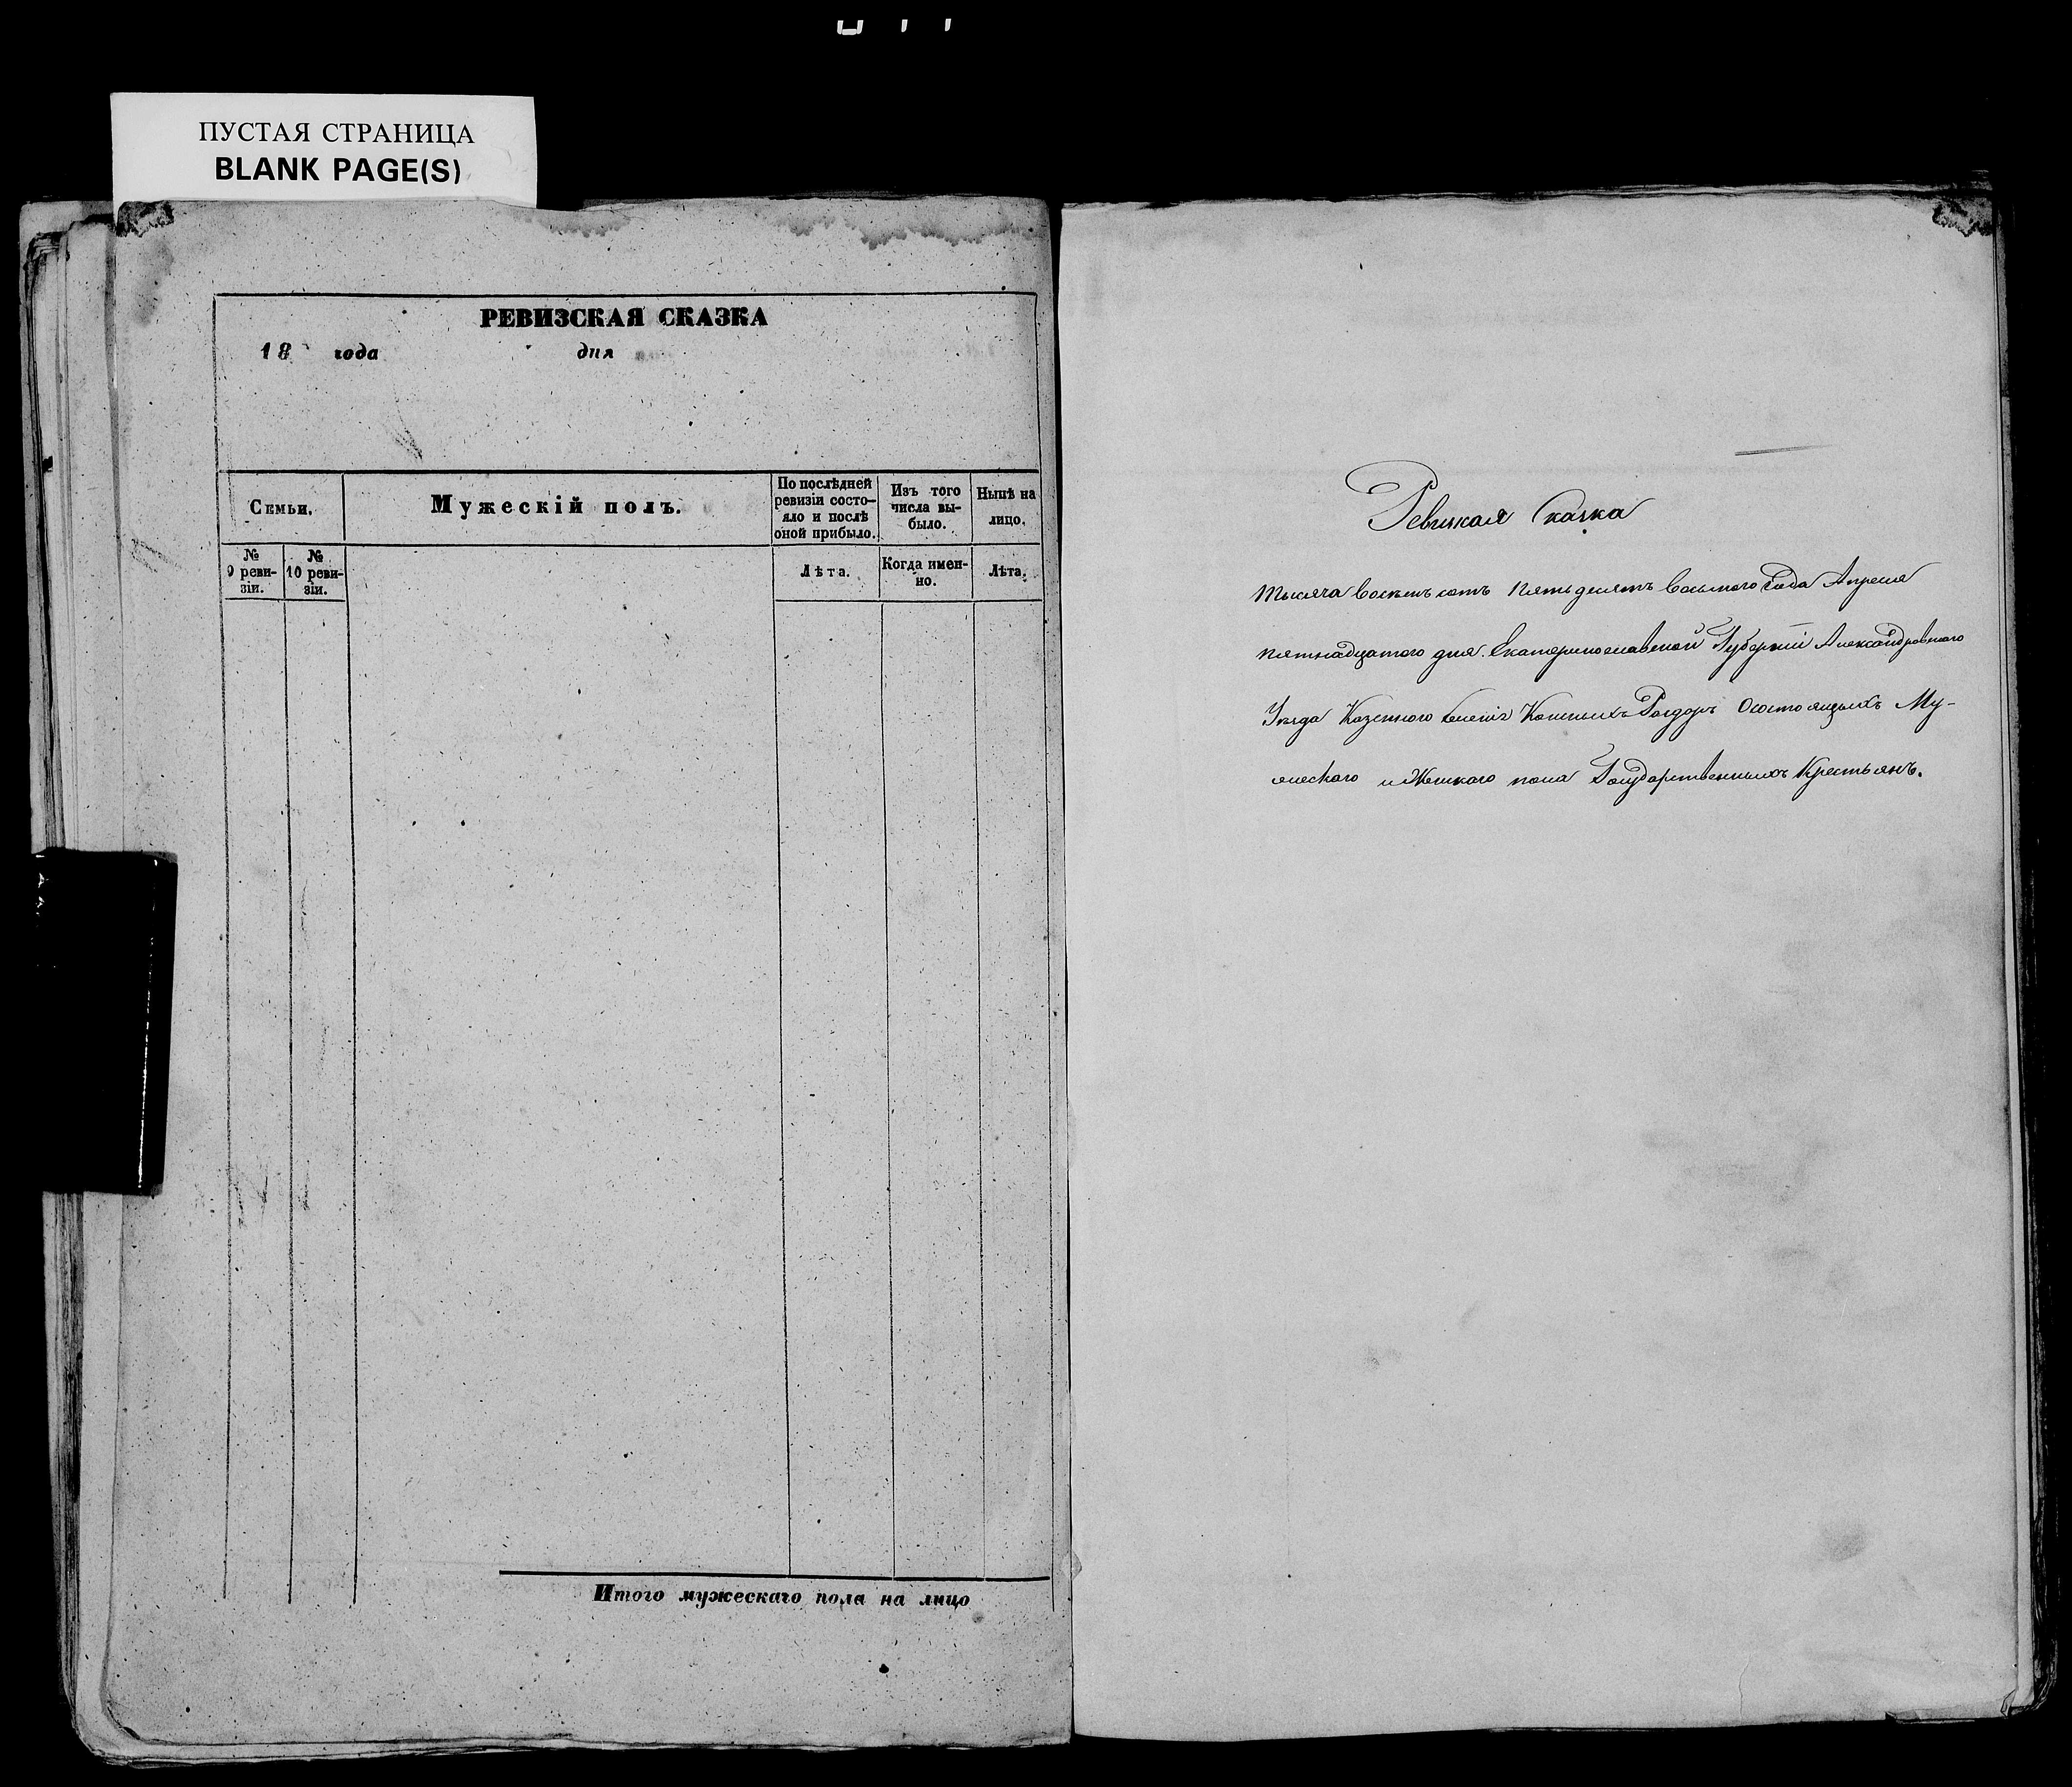 ПУСТАЯ СТРАНИЦА
BLANK PAGE(S)
РЕВИЗСКАЯ СКАЗКА
18 года дня
Семьи.
Мужескій полъ.
По послѣдней
ревизіи состо-
яло и послѣ
оной прибыло.
Изъ того
числа вы-
было.
Нынѣ на
лицо.
№
9 реви-
зіи.
№
10 реви-
зіи.
Лѣта.
Когда имен-
но.
Лѣта.
Итого мужескаго пола на лицо
Ревизкая Сказка
Тысяча восемь сотъ пятьдесятъ восьмого года Апреля
пятнадцатого дня. Екатеринославской Губерніи Александровского
Уезда Казенного Селенія Конскихъ Раздоръ О состоящихъ Му-
жеского и Женского пола Государственныхъ Крестьянъ.